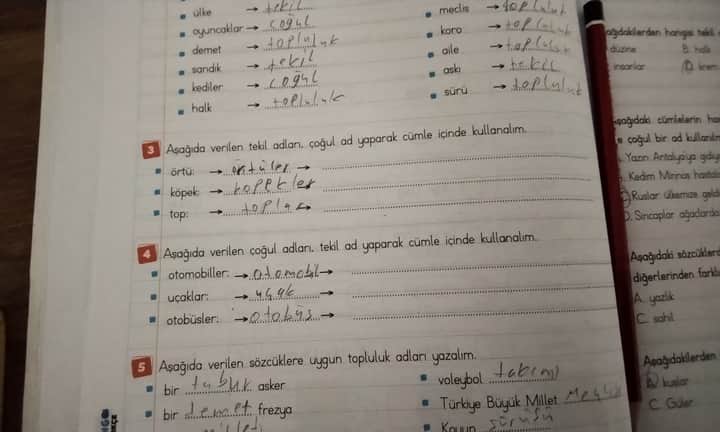 ülke → tekil
oyuncaklar → çoğul
demet → topluluk
sandık → tekil
kediler → çoğul
halk → topluluk
meclis → topluluk
koro → topluluk
aile → topluluk
askı → tekil
sürü → topluluk
3 Aşağıda verilen tekil adları, çoğul ad yaparak cümle içinde kullanalım.
örtü: → örtüler →
köpek: → köpekler
top: → toplar →
4 Aşağıda verilen çoğul adları, tekil ad yaparak cümle içinde kullanalım.
otomobiller: → otomobil →
uçaklar: → uçak →
otobüsler: → otobüs →
5 Aşağıda verilen sözcüklere uygun topluluk adları yazalım.
bir tabuk asker
bir demet frezya
voleybol takımı
Türkiye Büyük Millet Meclis
Koyun sürüsü
aşağıdakilerden hangisi tekil
düzine B. halk
insanlar D.
Aşağıdaki cümlelerin
çoğul bir ad
Yazın Antalya'ya
Kedim Minnoş
C) Ruslar ülkemize
D. Sincaplar ağaçlarda
Aşağıdaki
diğerlerinden
A. yazlık
C. sahil
Aşağıdakilerden
kuşlar
C. Güler